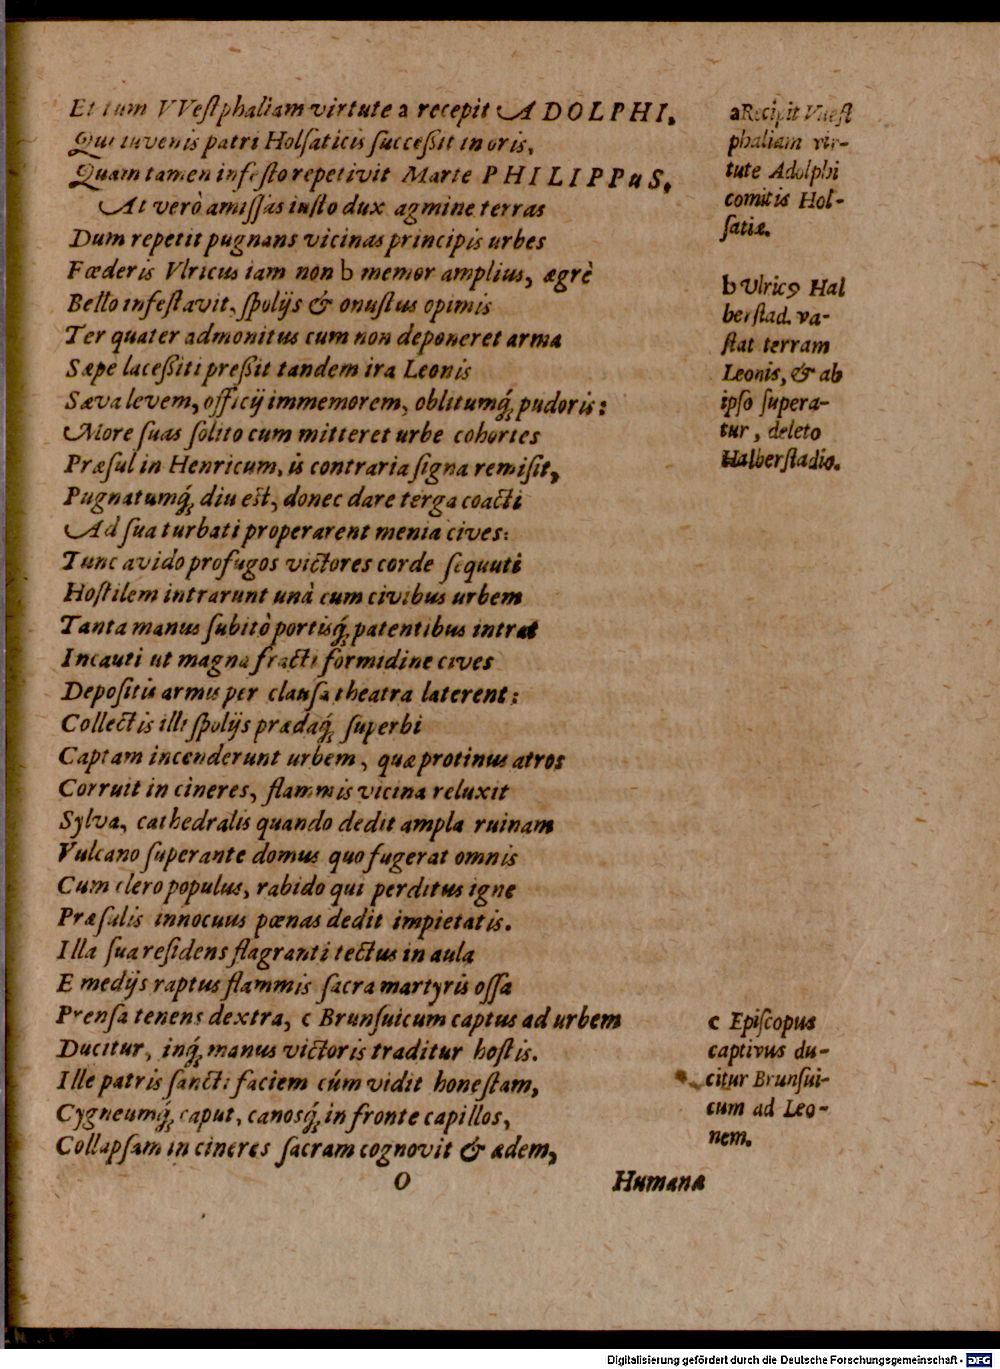 Et tum VVeſtphaliam virtute a recepit ADOLPHI,
Qui iuvenis patri Holſaticis ſucceßit in oris,
Quam tamen infeſto repetivit Marte PHILIPPuS,
At verò amiſſas iuſto dux agmine terras
Dum repetit pugnans vicinas principis urbes
Fœderis Vlricus iam non b memor amplius, ægrè
Bello infeſtavit, ſpolijs & onuſtus opimis
Ter quater admonitus cum non deponeret arma
Sæpe laceßiti preßit tandem ira Leonis
Sæva levem, officij immemorem, oblitumq́; pudoris:
More ſuas ſolito cum mitteret urbe cohortes
Præſul in Henricum, is contraria ſigna remiſit,
Pugnatumq́; diu eſt, donec dare terga coacti
Ad ſua turbati properarent menia cives:
Tunc avido profugos victores corde ſequuti
Hoſtilem intrarunt unà cum civibus urbem
Tanta manus ſubitò portisq́; patentibus intrat
Incauti ut magna fracti formidine cives
Depoſitis armis per clauſa theatra laterent:
Collectis illi ſpolijs prædaq́; ſuperbi
Captam incenderunt urbem, quæ protinus atros
Corruit in cineres, flammis vicina reluxit
Sylva, cathedralis quando dedit ampla ruinam
Vulcano ſuperante domus quo fugerat omnis
Cum clero populus, rabido qui perditus igne
Præſulis innocuus pœnas dedit impietatis.
Illa ſua reſidens flagranti tectus in aula
E medijs raptus flammis ſacra martyris oſſa
Prenſa tenens dextra, c Brunſuicum captus ad urbem
Ducitur, inq́; manus victoris traditur hoſtis.
Ille patris ſancti faciem cúm vidit honeſtam,
Cygneumq́; caput, canosq́; in fronte capillos,
Collapſam in cineres ſacram cognovit & ædem,
O
Humana
a Recipit Vueſt
phaliam vir-
tute Adolphi
comitis Hol-
ſatiæ.
b Ulricꝰ Hal
berſtad. va-
ſtat terram
Leonis, & ab
ipſo ſupera-
tur, deleto
Halberſtadio.
c Epiſcopus
captivus du-
citur Brunſui-
cum ad Leo-
nem.
Digitalisierung gefördert durch die Deutsche Forschungsgemeinschaft - DFG